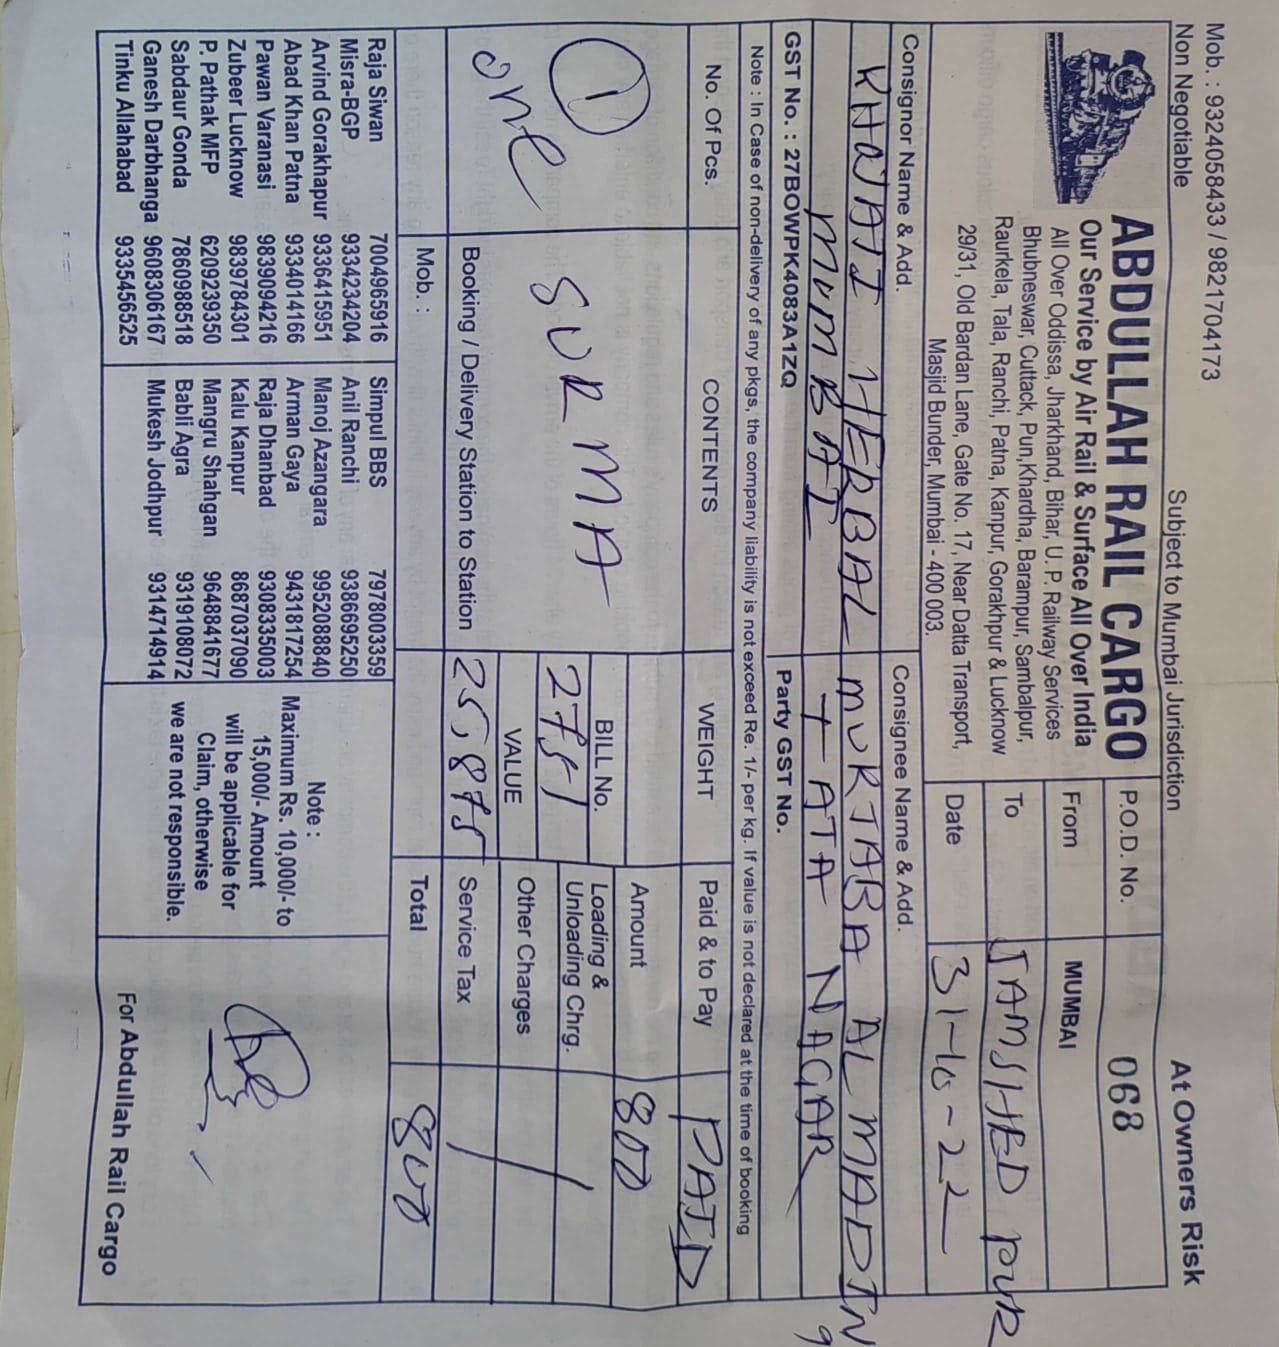 Mob. : 9324058433 / 9821704173
Non Negotiable
Subject to Mumbai Jurisdiction
At Owners Risk
ABDULLAH RAIL CARGO
Our Service by Air Rail & Surface All Over India
All Over Oddissa, Jharkhand, Bihar, U. P. Railway Services
Bhubneswar, Cuttack, Puri,Khardha, Barampur, Sambalpur,
Raurkela, Tala, Ranchi, Patna, Kanpur, Gorakhpur & Lucknow
29/31, Old Bardan Lane, Gate No. 17, Near Datta Transport,
Masjid Bunder, Mumbai - 400 003.
P.O.D. No. 068
From MUMBAI
To JAMSHED PUR
Date 31-10-22
Consignor Name & Add.
KHOJATI HERBAL
MUMBAI
Consignee Name & Add.
MURTABA AL MADINA
TATA NAGAR
GST No. : 27BOWPK4083A1ZQ
Party GST No.
Note : In Case of non-delivery of any pkgs, the company liability is not exceed Re. 1/- per kg. If value is not declared at the time of booking
No. Of Pcs. CONTENTS WEIGHT Paid & to Pay PAID
1
one
SURMA
Amount 800
BILL No.
2751
Loading &
Unloading Chrg.
VALUE
25,875
Other Charges
Booking / Delivery Station to Station
Service Tax
Mob. :
Total 800
Raja Siwan 7004965916
Misra-BGP 9334234204
Arvind Gorakhapur 9336415951
Abad Khan Patna 9334014166
Pawan Varanasi 9839094216
Zubeer Lucknow 9839784301
P. Pathak MFP 6209239350
Sabdaur Gonda 7860988518
Ganesh Darbhanga 9608306167
Tinku Allahabad 9335456525
Simpul BBS 7978003359
Anil Ranchi 9386695250
Manoj Azangara 9952088840
Arman Gaya 9431817254
Raja Dhanbad 9308335003
Kalu Kanpur 8687037090
Mangru Shahgan 9648841677
Babli Agra 9319108072
Mukesh Jodhpur 9314714914
Note :
Maximum Rs. 10,000/- to
15,000/- Amount
will be applicable for
Claim, otherwise
we are not responsible.
For Abdullah Rail Cargo